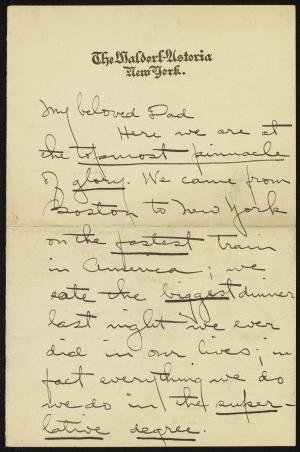 The Waldorf-Astoria
New York.
My beloved Dad
Here we are at
the topmost pinnacle
of glory. We came from
Boston to New York
on the fastest train
in America; we
ate the biggest dinner
last night we ever
did in our lives; in
fact everything we do
we do in the super-
lative degree.